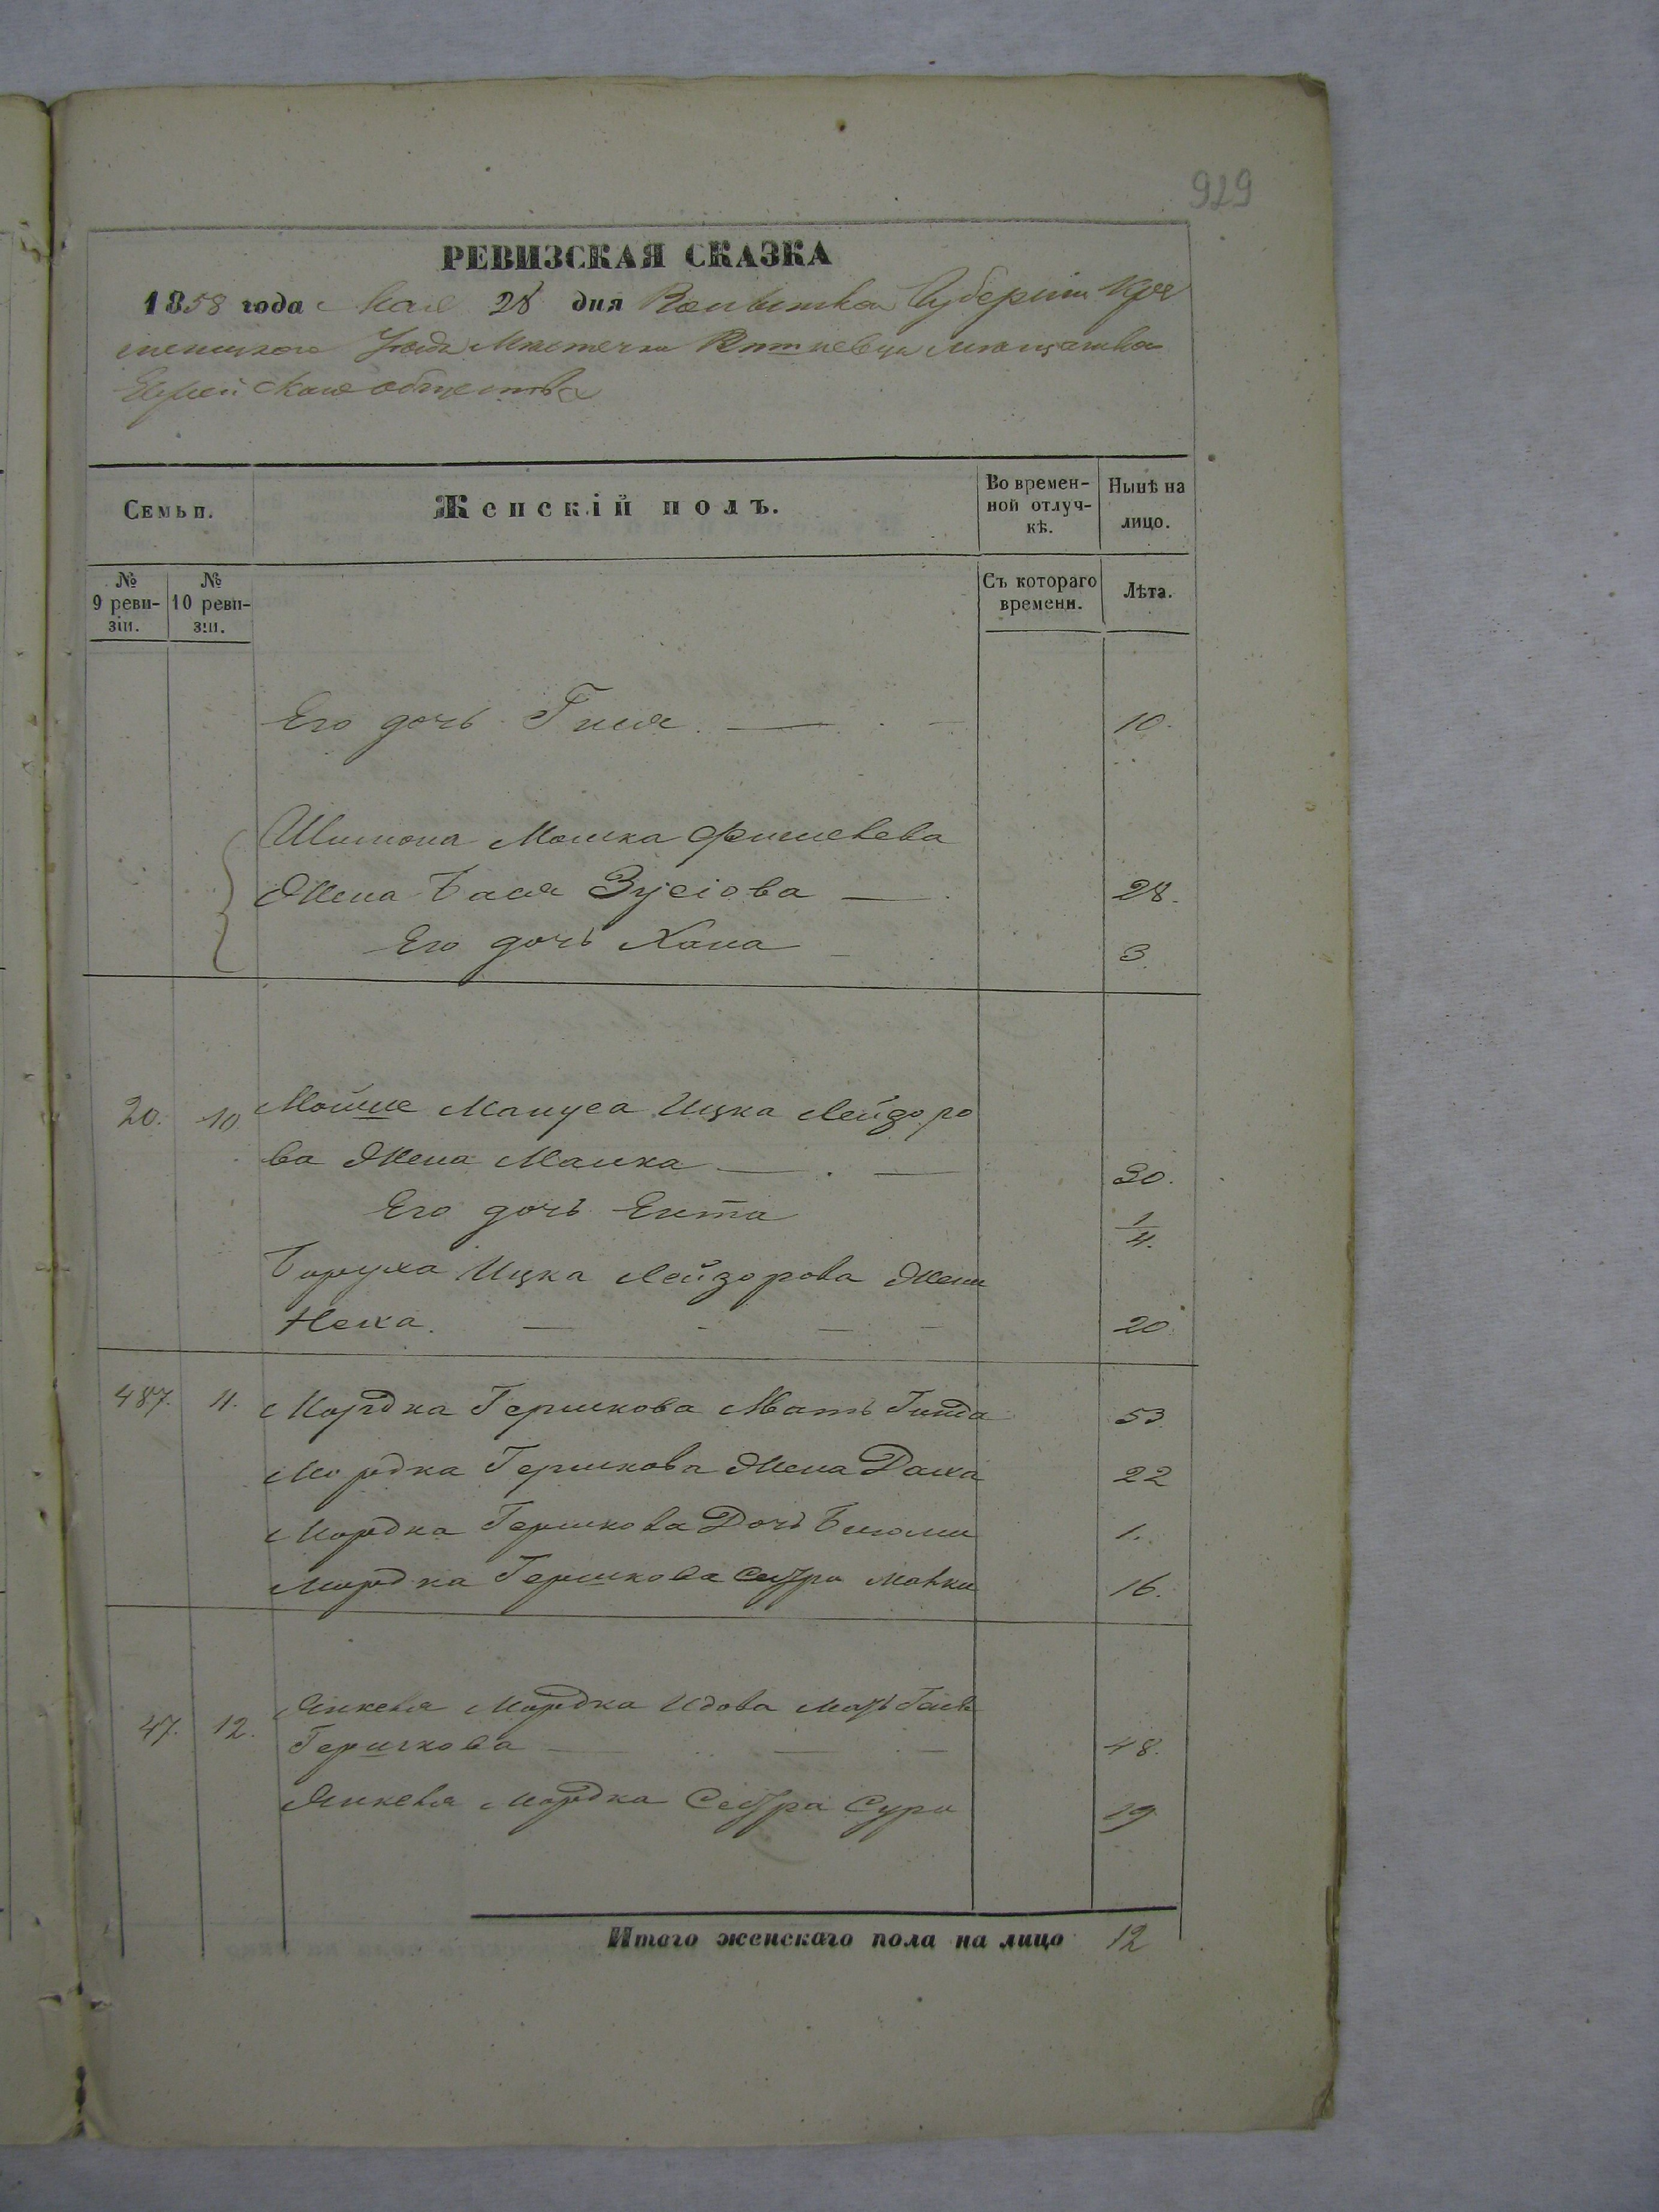 929
РЕВИЗСКАЯ СКАЗКА
1858 года Мая 28 дня Волынской Губернии Кре
менецкого Уезда Местечка мещанско
Еврейского общества
Семьи. Женскій полъ. Во времен-ной отлуч-кѣ. Нынѣ на лицо.
№ 9 реви-зіи. № 10 реви-зіи. Съ котораго времени. Лѣта.
Его дочь Гися 10.
Шимона Мошка Фишелева
Жена Бася Зусіова 28.
Его дочь Хана 3
20. 10 Мойше Мануса Ицка Лейзоро
ва Жена Малка 30.
Его дочь Ента 1/4.
Боруха Ицка Лейзорова Жена
20
487. 11. Мордка Гершкова Мать Гитда 53.
Мордка Гершкова Жена 22
Мордка Гершкова Дочь 1.
Мордка Гершкова Сестра 16.
47. 12. Янкеля Мордка Идова Мать
Гершкова 48.
Янкеля Мордка Сестра Сура 19
Итого женскаго пола на лицо 12